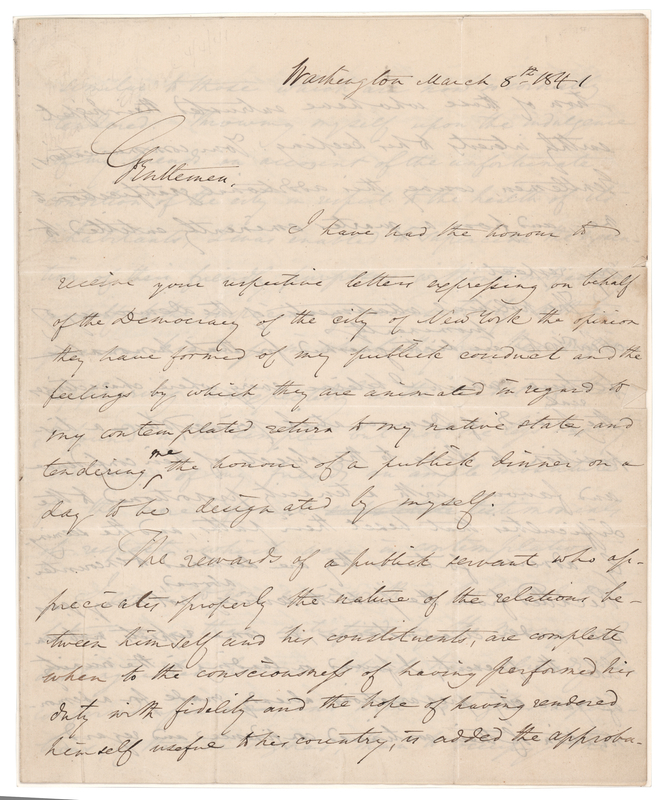 Washington March 8th 1841
Gentlemen,
I have had the honour to
receive your respective letters expressing on behalf
of the Democracy of the city of New York the opinion
they have formed of my publick conduct and the
feelings by which they are animated in regard to
my contemplated return to my native state, and
tendering me the honour of a publick dinner on a
day to be designated by myself.
The rewards of a publick servant who ap-
preciates properly the nature of the relations be-
tween himself and his constituents, are complete
when to the consciousness of having performed his
duty with fidelity and the hope of having rendered
himself useful to his country, is added the approba-